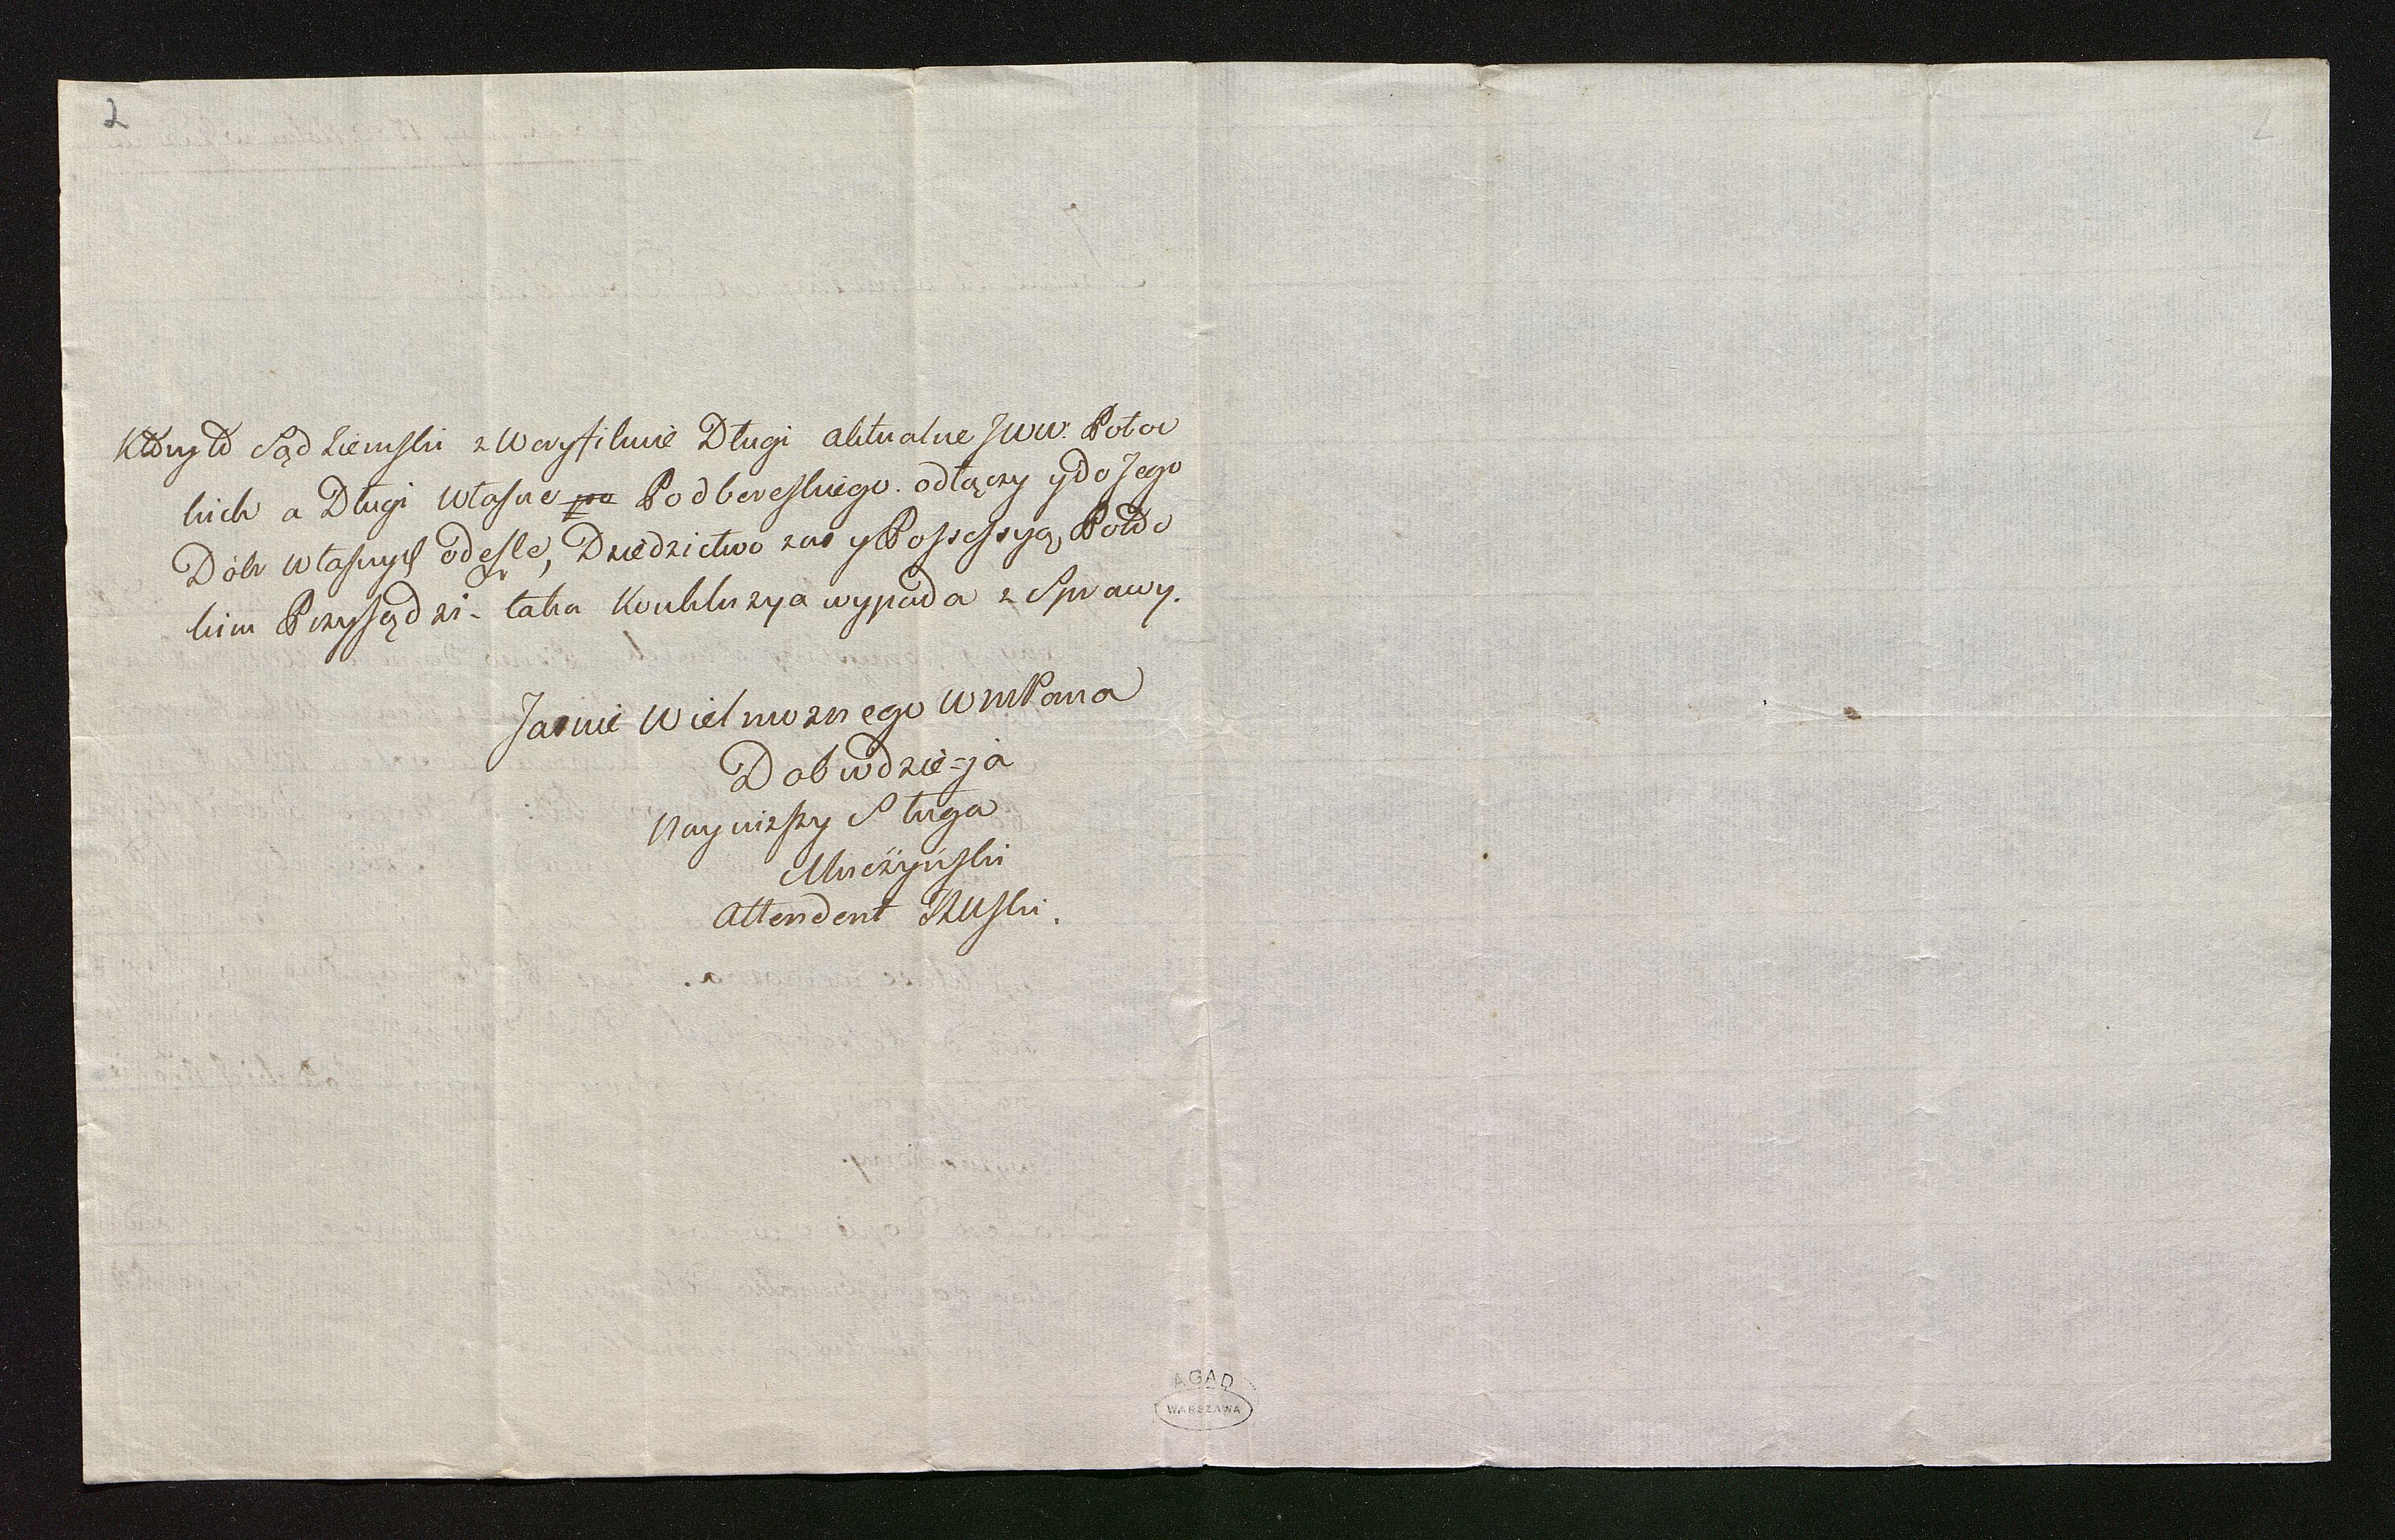 2
2
Któryto Sąd Ziemski zweryfikuie Długi aktualne JWW: Potoc
kich a Długi własne po Podbereskiego. odłączy y do Jego
Dóbr własnych odeśle, Dziedzictwo zas y Possessyą Potoc
kim Przysądzi - taka Konkluzya wypada z Sprawy.
Jasnie Wielmoznego WmPana
Dobrodzie=ja
Nayniższy Sługa
Muczyński
Attendent
AGAD
WARSZAWA